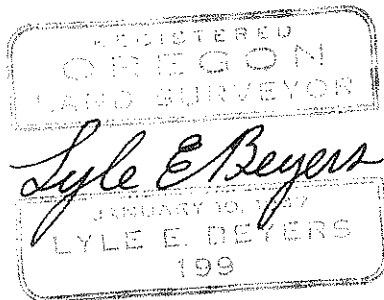 REGISTERED
OREGON
LAND SURVEYOR
Lyle E Beyers
JANUARY 10,
LYLE E. BEYERS
199